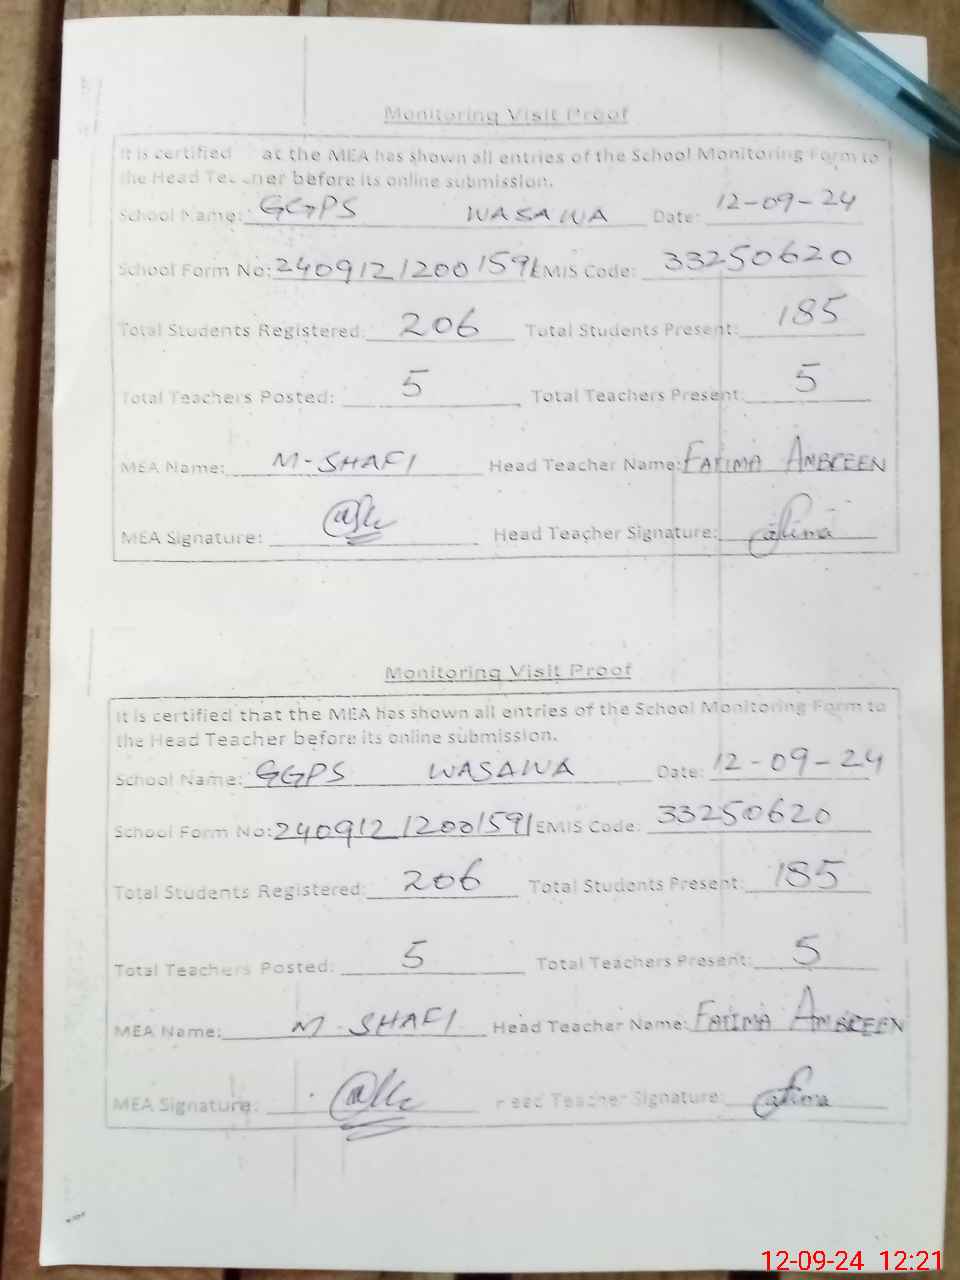 Monitoring Visit Proof
It is certified at the MEA has shown all entries of the School Monitoring Form to
the Head Teacher before its online submission.
School Name: GGPS WASAWA Date: 12-09-24
School Form No: 24091212001591 EMIS Code: 33250620
Total Students Registered: 206 Total Students Present: 185
Total Teachers Posted: 5 Total Teachers Present: 5
MEA Name: M-SHAFI Head Teacher Name: FATIMA AMBREEN
MEA Signature: Head Teacher Signature: Fatima
Monitoring Visit Proof
It is certified that the MEA has shown all entries of the School Monitoring Form to
the Head Teacher before its online submission.
School Name: GGPS WASAWA Date: 12-09-24
School Form No: 24091212001591 EMIS Code: 33250620
Total Students Registered: 206 Total Students Present: 185
Total Teachers Posted: 5 Total Teachers Present: 5
MEA Name: M. SHAFI Head Teacher Name: FATIMA AMBREEN
MEA Signature: Head Teacher Signature: Fatima
12-09-24 12:21